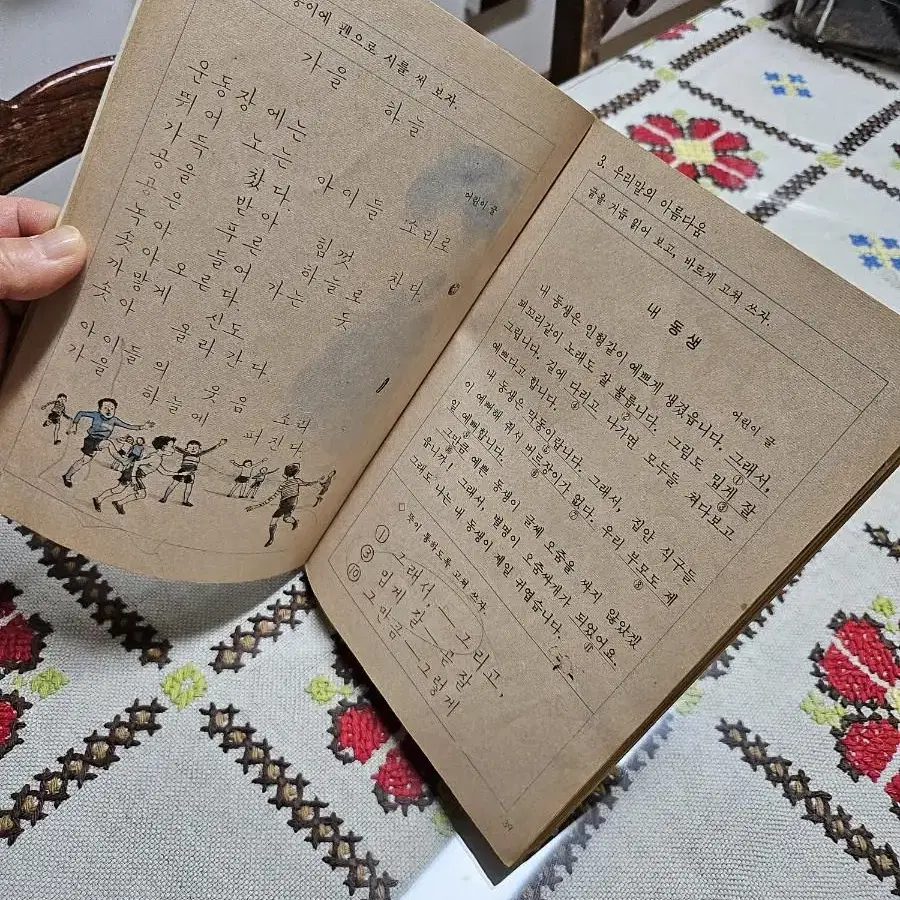 펜으로 시를 써 보자.
가을 하늘
어린이 글
운동장에는
뛰어 노는 아이들 소리로
가득 찼다.
공을 받아 힘껏 찬다.
공은 푸른 하늘로
녹아 들어 가는 듯
솟아 오른다.
까맣게 신도
솟아 올라간다.
아이들의 웃음 소리
가을 하늘에 퍼진다.
3. 우리말의 아름다움
글을 거듭 읽어 보고, 바르게 고쳐 쓰자.
내 동생
어린이 글
내 동생은 인형같이 예쁘게 생겼읍니다. 그래서,
꾀꼬리같이 노래도 잘 부릅니다. 그림도 밉게 잘
그립니다. 길에 다리고 나가면 모두들 쳐다보고
예쁘다고 합니다.
내 동생은 막동이랍니다. 그래서, 집안 식구들
이 예뻐해 줘서 버르장이가 없다. 우리 부모도 제
일 예뻐합니다.
그만큼 예쁜 동생이 글쎄 오줌을 싸지 않았겠
읍니까! 그래서, 별명이 오줌싸개가 되었어요.
그래도 나는 내 동생이 제일 귀엽습니다.
◇ 뜻이 통하도록 고쳐 쓰자.
① 그래서, — 그리고,
③ 잘 — 잘
⑩ 그만큼 — 그렇게
39